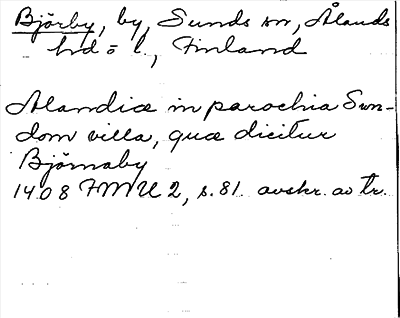 Björby, by, Sunds sn, Ålands
hd o l., Finland
Alandiæ in parochia Sun-
dom villa, quæ dicitur
Björnaby
1408 FMU 2, s. 81. avskr. av tr.